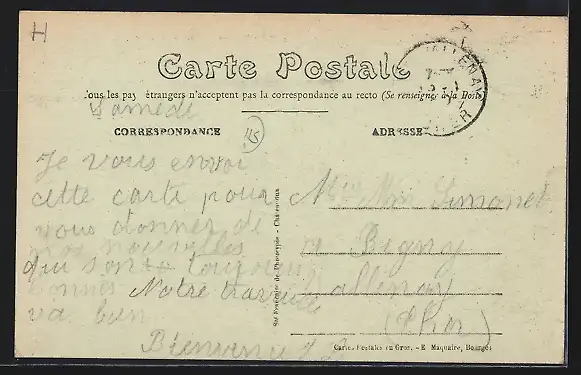 H
Carte Postale
Tous les pays étrangers n'acceptent pas la correspondance au recto (Se renseigner à la Poste)
Samedi
CORRESPONDANCE
ADRESSE
Je vous envoi
cette carte pour
vous donner de
nos nouvelles
qui sont toujours
bonnes Notre travaille
va bien
Bienvenu
Simonet
Bigny
Vallenay
(Cher)
Sté Française de Phototypie - Châteauroux
Cartes Postales en Gros. - E. Maquaire, Bourges